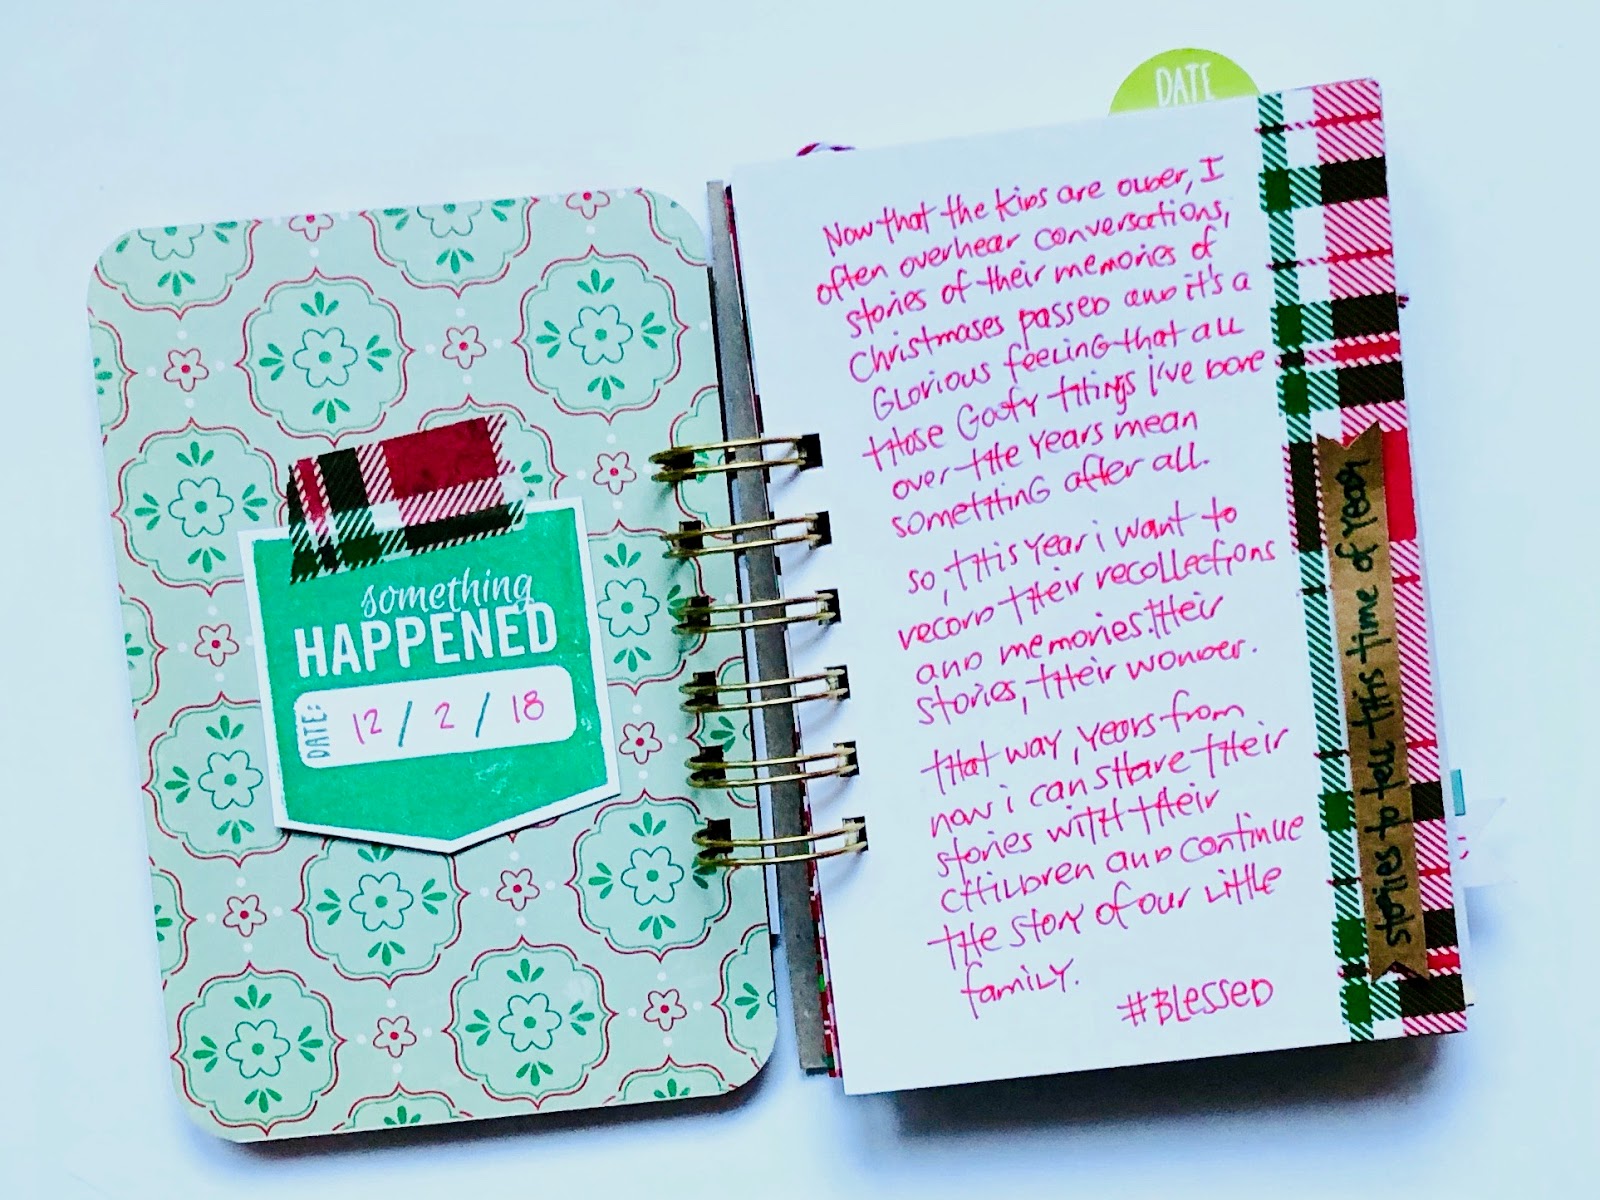 something
HAPPENED
DATE: 12/2/18
DATE
Now that the kids are older, I
often overhear conversations,
stories of their memories of
Christmases passed and it's a
Glorious feeling that all
those Goofy things I've done
over the years mean
something after all.
so, this year i want to
record their recollections
and memories. their
stories, their wonder.
that way, years from
now i can share their
stories with their
children and continue
the story of our little
family.
#BLESSED
stories to tell this time of year